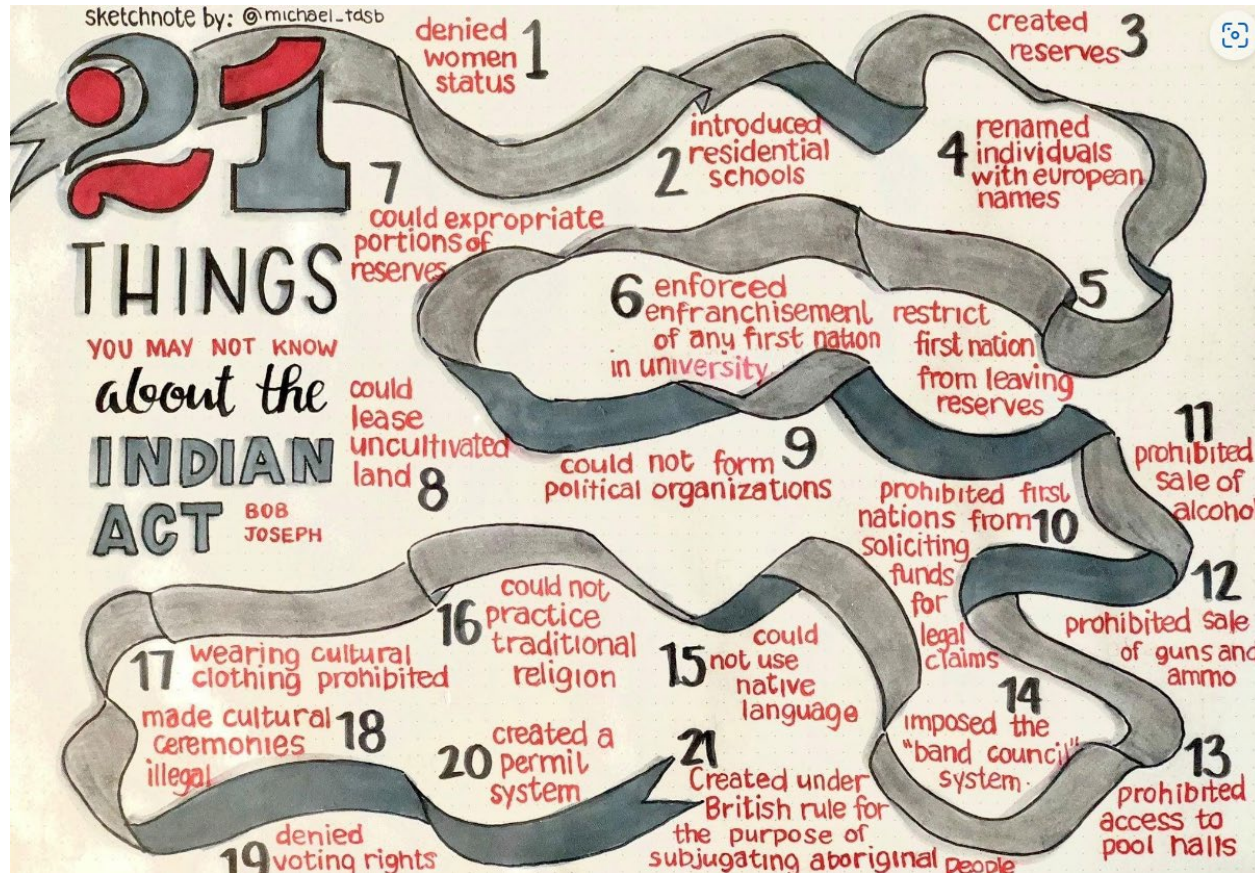 sketchnote by: @michael_tdsb
21
THINGS
YOU MAY NOT KNOW
about the
INDIAN
ACT
BOB
JOSEPH
1
denied
women
status
2
introduced
residential
schools
3
created
reserves
4
renamed
individuals
with european
names
5
restrict
first nation
from leaving
reserves
6
enforced
enfranchisement
of any first nation
in university
7
could expropriate
portions of
reserves
8
could
lease
uncultivated
land
9
could not form
political organizations
10
prohibited first
nations from
soliciting
funds
for
legal
claims
11
prohibited
sale of
alcohol
12
prohibited sale
of guns and
ammo
13
prohibited
access to
pool halls
14
imposed the
"band council"
system.
15
could
not use
native
language
16
could not
practice
traditional
religion
17
wearing cultural
clothing prohibited
18
made cultural
ceremonies
illegal
19
denied
voting rights
20
created a
permit
system
21
Created under
British rule for
the purpose of
subjugating aboriginal people